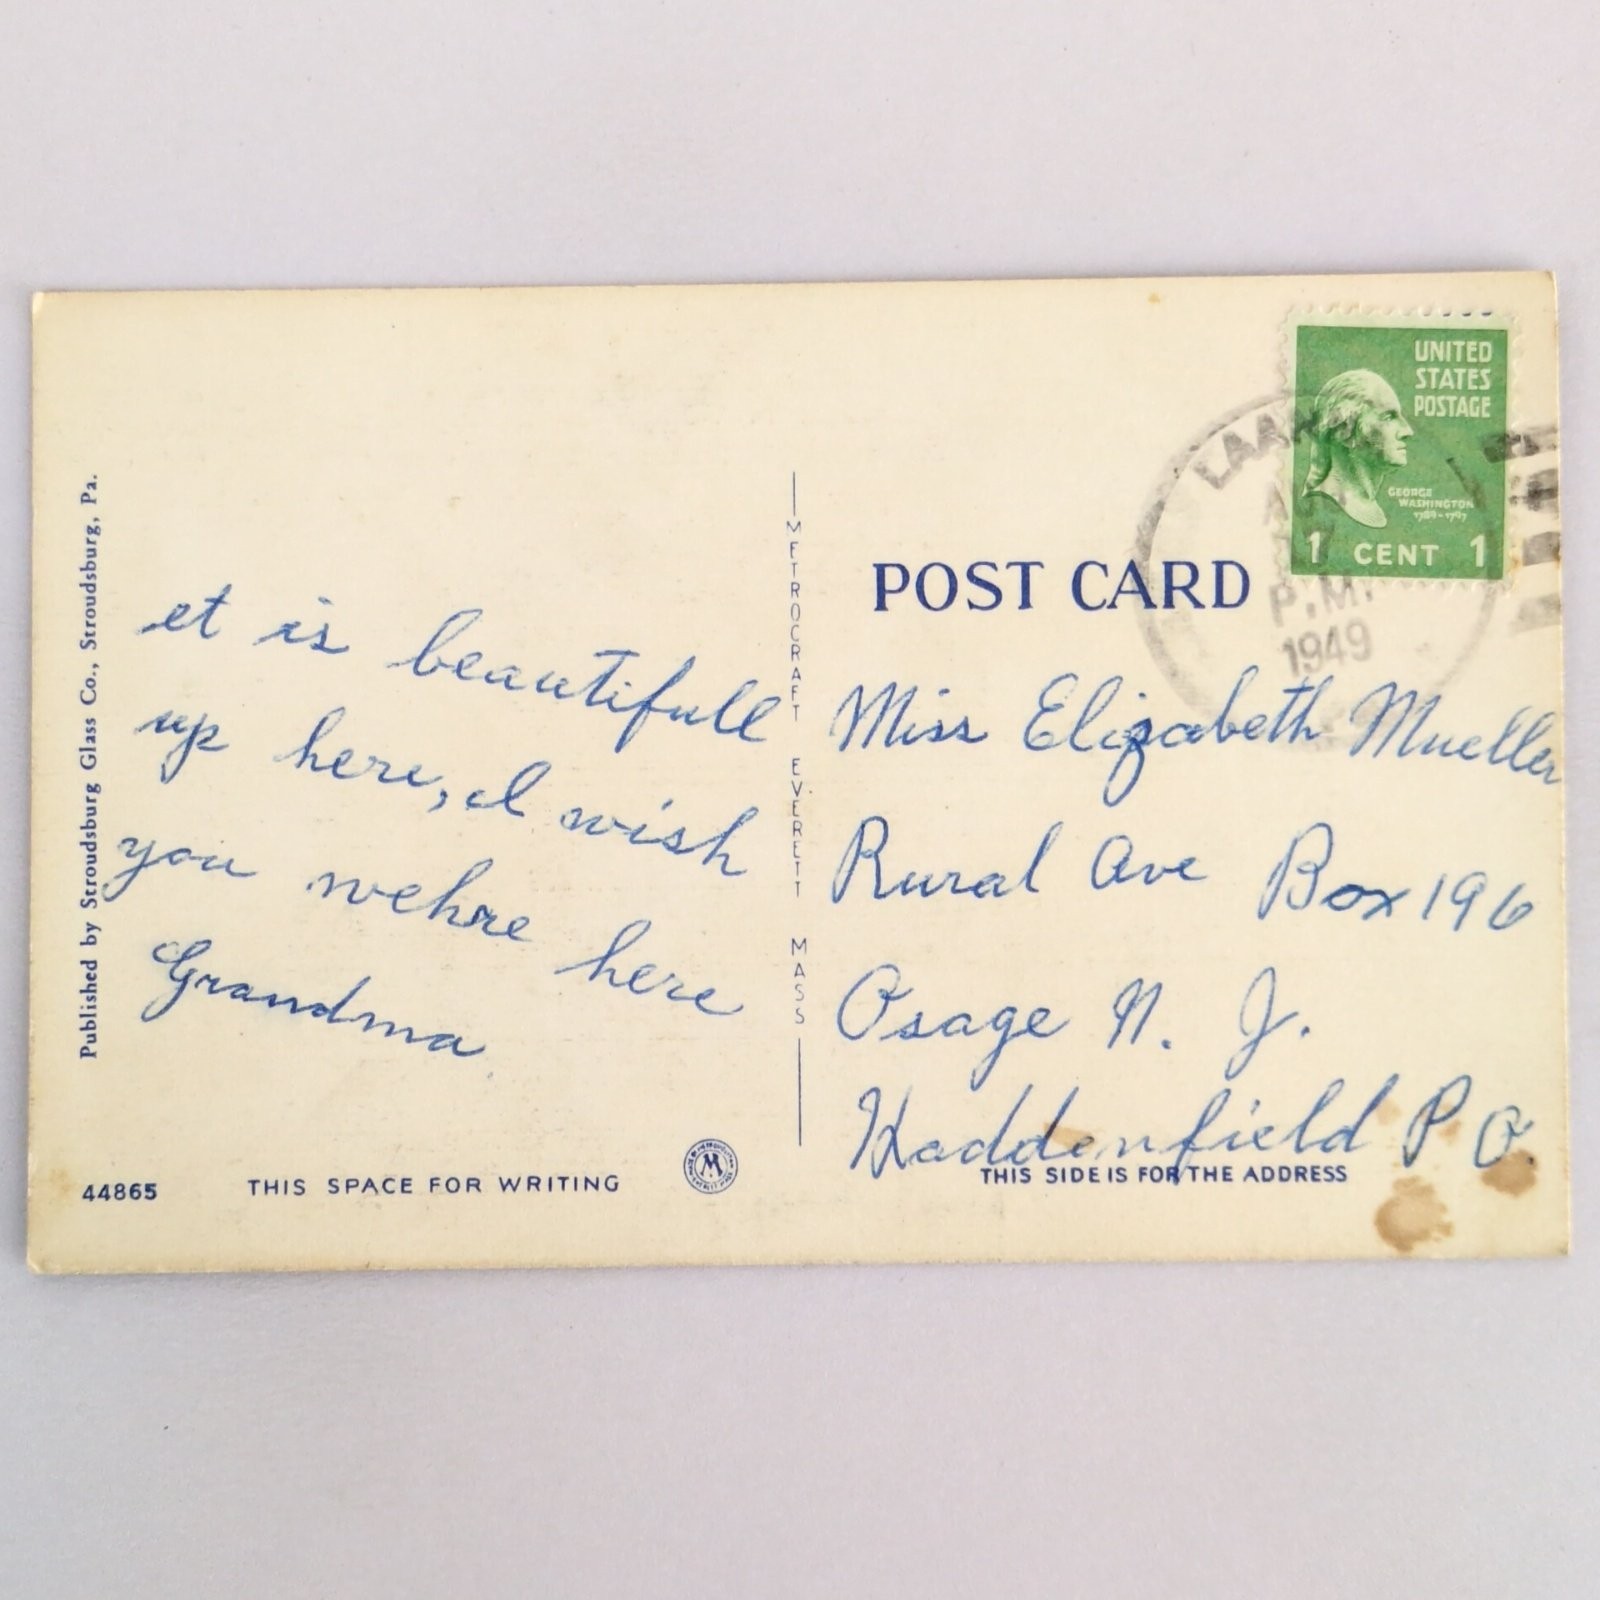 Published by Stroudsburg Glass Co., Stroudsburg, Pa.
et is beautifull
up here, I wish
you wehre here
Grandma
44865
THIS SPACE FOR WRITING
M
METROCRAFT EVERETT MASS
POST CARD
P.M.
1949
UNITED
STATES
POSTAGE
GEORGE
WASHINGTON
1789-1797
1 CENT 1
Miss Elizabeth Mueller
Rural Ave Box 196
Osage N. J.
Haddenfield P O.
THIS SIDE IS FOR THE ADDRESS